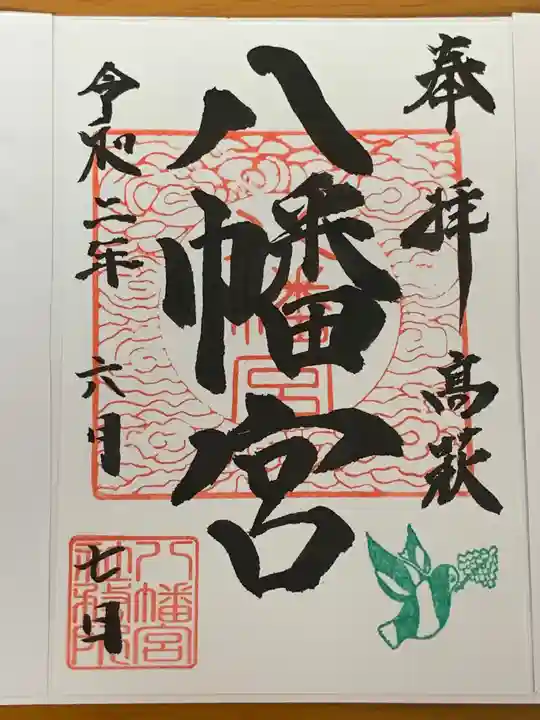 奉拝 高萩
八幡宮
令和二年 六月 七日
八幡宮
八幡宮
社務所